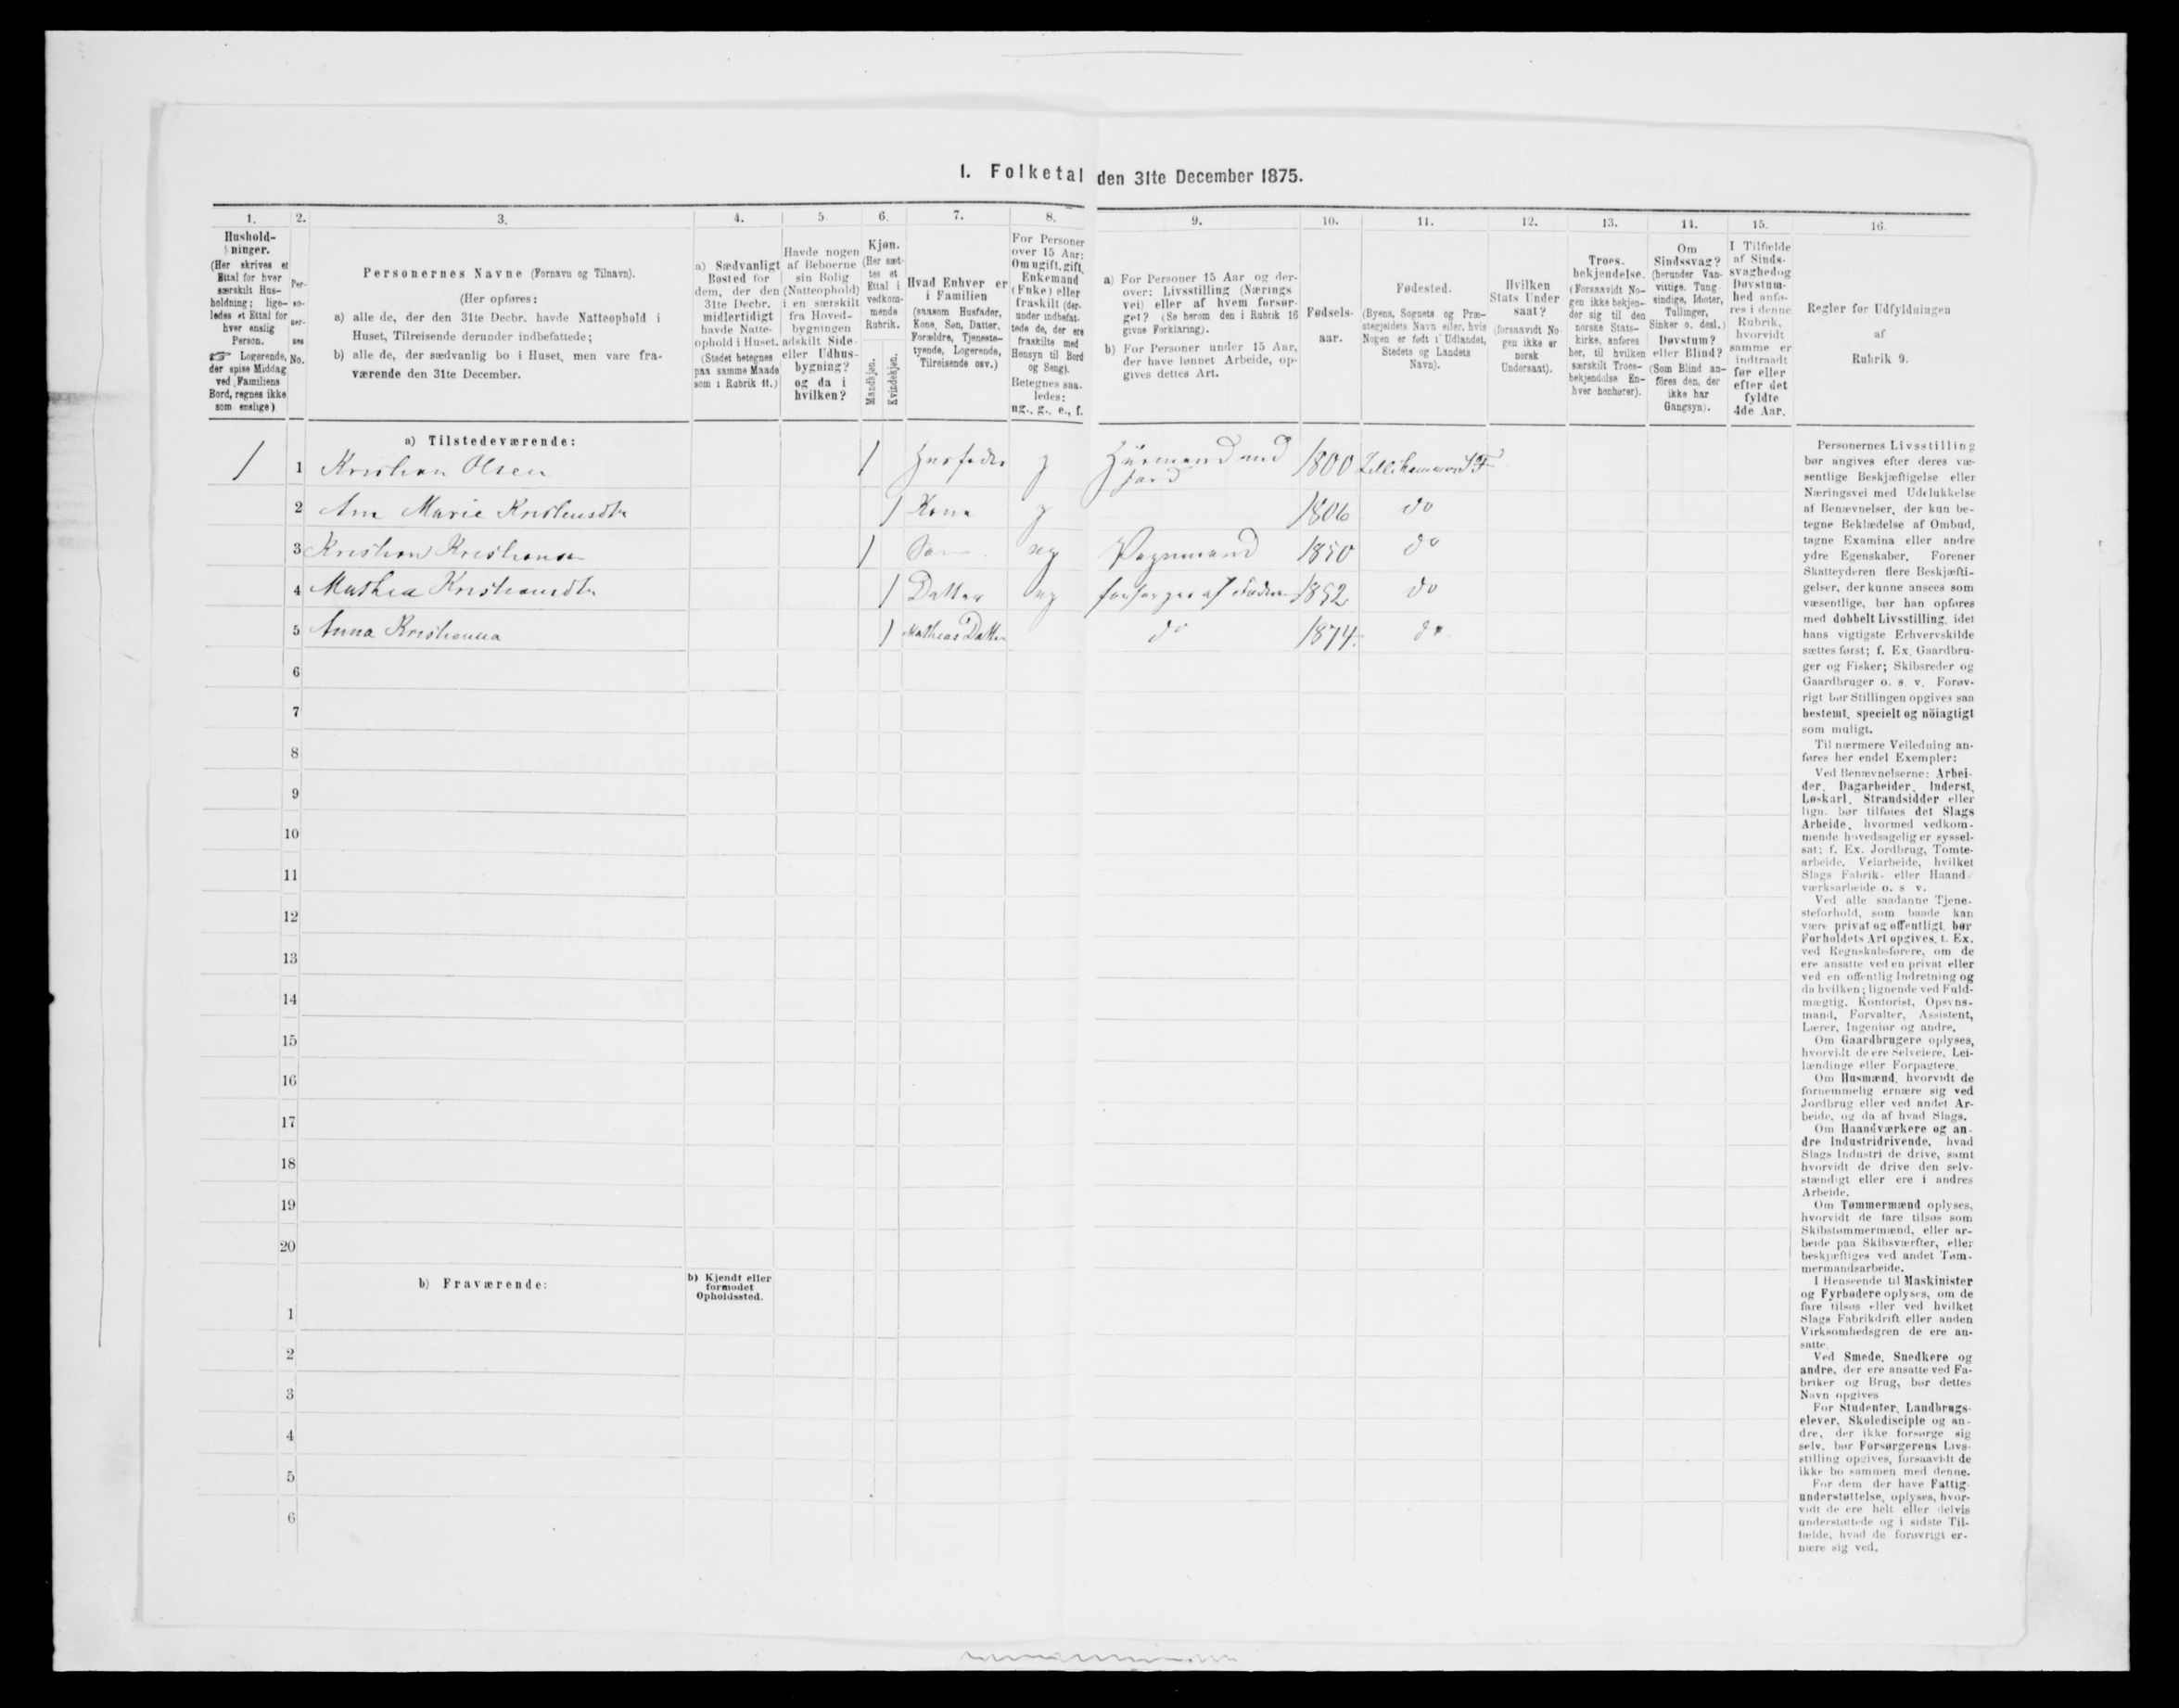 I. Folketal den 31te December 1875.
1. 2. 3. 4. 5. 6. 7. 8. 9. 10. 11. 12. 13. 14. 15. 16.
Hushold-
ninger.
(Her skrives et
Ettal for hver
særskilt Hus-
holdning; lige-
ledes et Ettal for
hver enslig
Person.
☞ Logerende,
der spise Middag
ved Familiens
Bord, regnes ikke
som enslige)
Per-
so-
ner-
nes
No.
Personernes Navne (Fornavn og Tilnavn).
(Her opføres:
a) alle de, der den 31te Decbr. havde Natteophold i
Huset, Tilreisende derunder indbefattede;
b) alle de, der sædvanlig bo i Huset, men vare fra-
værende den 31te December.
a) Sædvanligt
Bosted for
dem, der den
31te Decbr.
midlertidigt
havde Natte-
ophold i Huset.
(Stedet betegnes
paa samme Maade
som i Rubrik 11.)
Havde nogen
af Beboerne
sin Bolig
(Natteophold)
i en særskilt
fra Hoved-
bygningen
adskilt Side-
eller Udhus-
bygning?
og da i
hvilken?
Kjøn.
(Her sæt-
tes et
Ettal i
vedkom-
mende
Rubrik.
Mandkjøn.
Kvindekjøn.
Hvad Enhver er
i Familien
(saasom Husfader,
Kone, Søn, Datter,
Forældre, Tjeneste-
tyende, Logerende,
Tilreisende osv.)
For Personer
over 15 Aar:
Om ugift, gift,
Enkemand
(Enke) eller
fraskilt (der-
under indbefat-
tede de, der ere
fraskilte med
Hensyn til Bord
og Seng).
Betegnes saa-
ledes:
ug., g., e., f.
a) For Personer 15 Aar og der-
over: Livsstilling (Nærings
vei) eller af hvem forsør-
get? (Se herom den i Rubrik 16
givne Forklaring).
b) For Personer under 15 Aar,
der have lønnet Arbeide, op-
gives dettes Art.
Fødsels-
aar.
Fødested.
(Byens, Sognets og Præ-
stegjeldets Navn eller, hvis
Nogen er født i Udlandet,
Stedets og Landets
Navn).
Hvilken
Stats Under
saat?
(forsaavidt No-
gen ikke er
norsk
Undersaat).
Troes-
bekjendelse.
(Forsaavidt No-
gen ikke bekjen-
der sig til den
norske Stats-
kirke, anføres
her, til hvilken
særskilt Troes-
bekjendelse En-
hver henhører).
Om
Sindssvag?
(herunder Van-
vittige, Tung-
sindige, Idioter,
Tullinger,
Sinker o. desl.)
Døvstum?
eller Blind?
(Som Blind an-
føres den, der
ikke har
Gangsyn).
I Tilfælde
af Sinds-
svaghed og
Døvstum-
hed anfø-
res i denne
Rubrik,
hvorvidt
samme er
indtraadt
før eller
efter det
fyldte
4de Aar.
Regler for Udfyldningen
af
Rubrik 9.
a) Tilstedeværende:
1 1 Kristian Olsen 1 Husfader g Husmand med Jord 1800 Lillehammer LF
2 Ane Marie Kristensdtr 1 Kone g 1806 do
3 Kristian Kristiansen 1 Søn ug 1850 do
4 Mathea Kristiansdtr 1 Datter ug forsørges af Fader 1852 do
5 Anna Kristiansa 1 Matheas Datter do 1874 do
6
7
8
9
10
11
12
13
14
15
16
17
18
19
20
b) Fraværende:
b) Kjendt eller
formodet
Opholdssted.
1
2
3
4
5
6
Personernes Livsstilling
bør angives efter deres væ-
sentlige Beskjæftigelse eller
Næringsvei med Udelukkelse
af Benævnelser, der kun be-
tegne Beklædelse af Ombud,
tagne Examina eller andre
ydre Egenskaber. Forener
Skatteyderen flere Beskjæfti-
gelser, der kunne ansees som
væsentlige, bør han opføres
med dobbelt Livsstilling, idet
hans vigtigste Erhvervskilde
sættes først; f. Ex. Gaardbru-
ger og Fisker; Skibsreder og
Gaardbruger o. s. v. Forøv-
rigt bør Stillingen opgives saa
bestemt, specielt og nöiagtigt
som muligt.
Til nærmere Veiledning an-
føres her endel Exempler:
Ved Benævnelserne: Arbei-
der, Dagarbeider, Inderst,
Løskarl, Strandsidder eller
lign. bør tilføies det Slags
Arbeide, hvormed vedkom-
mende hovedsagelig er syssel-
sat; f. Ex. Jordbrug, Tomte-
arbeide, Veiarbeide, hvilket
Slags Fabrik- eller Haand-
værksarbeide o. s. v.
Ved alle saadanne Tjene-
steforhold, som baade kan
være privat og offentligt, bør
Forholdets Art opgives, t. Ex.
ved Regnskabsførere, om de
ere ansatte ved en privat eller
ved en offentlig Indretning og
da hvilken; lignende ved Fuld-
mægtig, Kontorist, Opsyns-
mand, Forvalter, Assistent,
Lærer, Ingeniør og andre.
Om Gaardbrugere oplyses,
hvorvidt de ere Selveiere, Lei-
lændinge eller Forpagtere.
Om Husmænd, hvorvidt de
fornemmelig ernære sig ved
Jordbrug eller ved andet Ar-
beide, og da af hvad Slags.
Om Haandværkere og an-
dre Industridrivende, hvad
Slags Industri de drive, samt
hvorvidt de drive den selv-
stændigt eller ere i andres
Arbeide.
Om Tømmermænd oplyses,
hvorvidt de fare tilsøs som
Skibstømmermænd, eller ar-
beide paa Skibsværfter, eller
beskjæftiges ved andet Tøm-
mermandsarbeide.
I Henseende til Maskinister
og Fyrbødere oplyses, om de
fare tilsøs eller ved hvilket
Slags Fabrikdrift eller anden
Virksomhedsgren de ere an-
satte.
Ved Smede, Snedkere og
andre, der ere ansatte ved Fa-
briker og Brug, bør dettes
Navn opgives
For Studenter, Landbrugs-
elever, Skoledisciple og an-
dre, der ikke forsørge sig
selv, bør Forsørgerens Livs-
stilling opgives, forsaavidt de
ikke bo sammen med denne.
For dem der have Fattig-
understøttelse, oplyses, hvor-
vidt de ere helt eller delvis
understøttede og i sidste Til-
fælde, hvad de forøvrigt er-
nære sig ved.